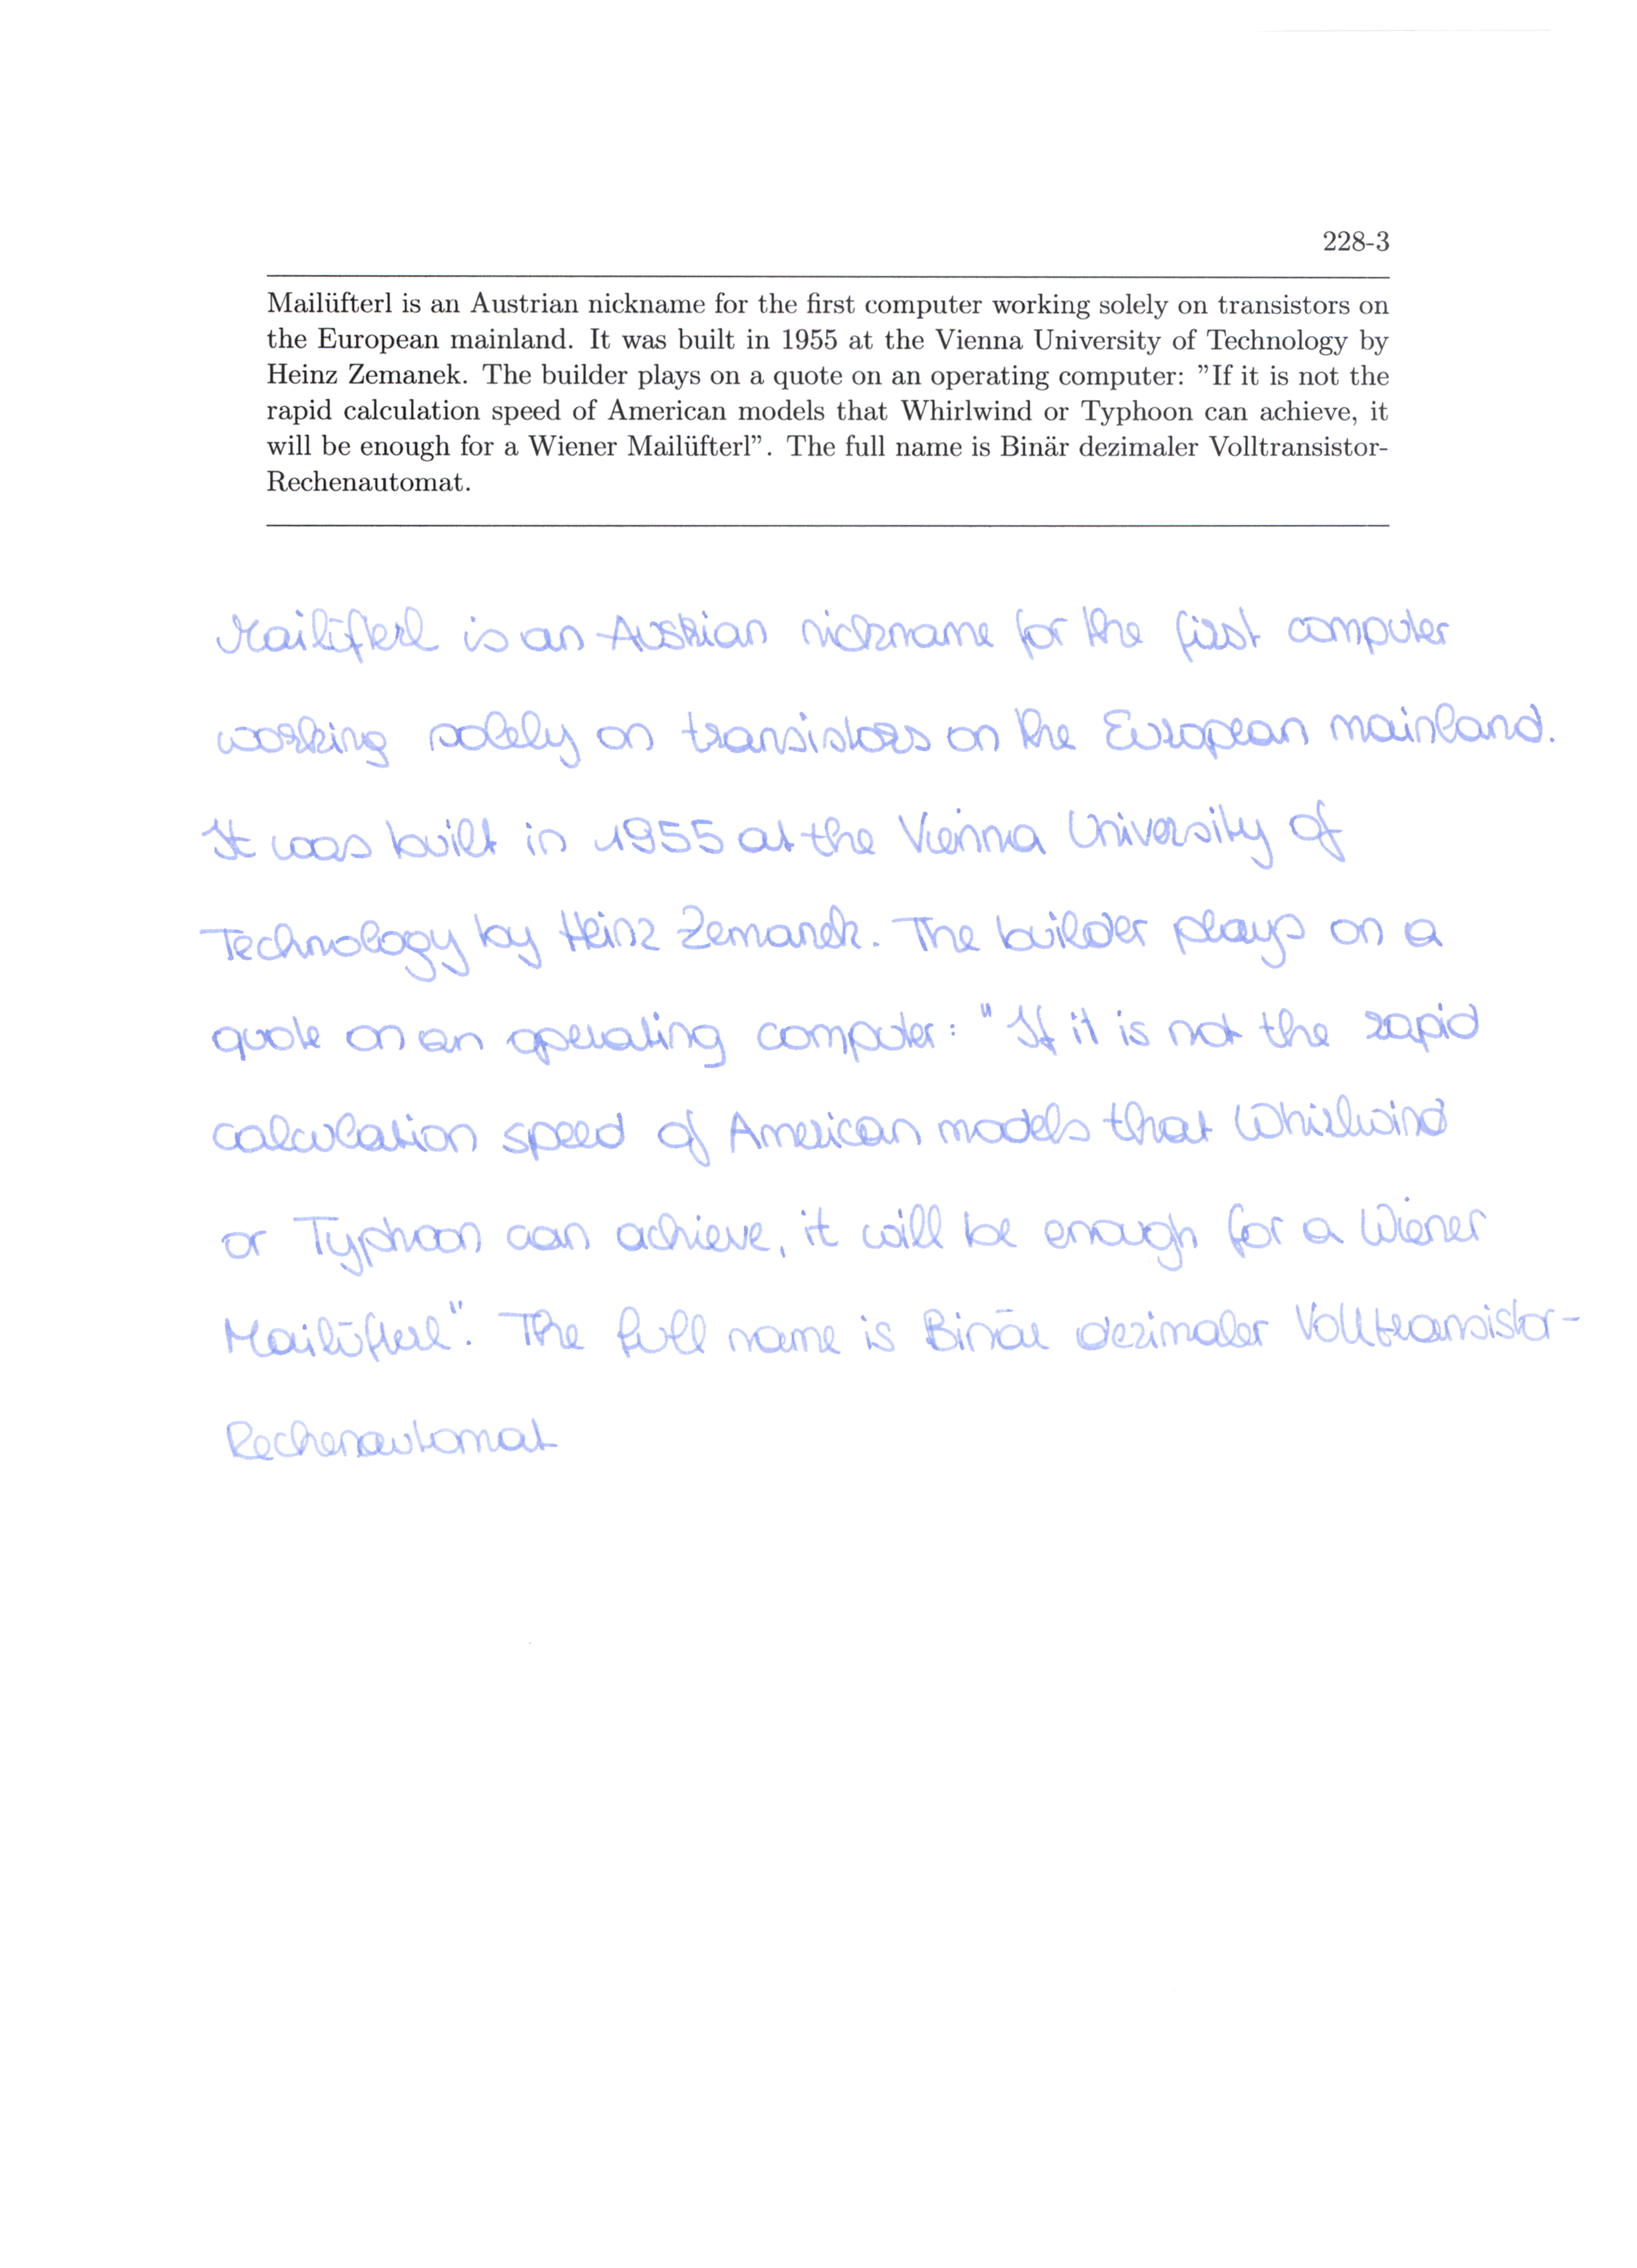 228-3
Mailüfterl is an Austrian nickname for the first computer working solely on transistors on
the European mainland. It was built in 1955 at the Vienna University of Technology by
Heinz Zemanek. The builder plays on a quote on an operating computer: ”If it is not the
rapid calculation speed of American models that Whirlwind or Typhoon can achieve, it
will be enough for a Wiener Mailüfterl”. The full name is Binär dezimaler Volltransistor-
Rechenautomat.
Mailüfterl is an Austrian nickname for the first computer
working solely on transistors on the European mainland.
It was built in 1955 at the Vienna University of
Technology by Heinz Zemanek. The builder plays on a
quote on an operating computer: "If it is not the rapid
calculation speed of American models that Whirlwind
or Typhoon can achieve, it will be enough for a Wiener
Mailüfterl". The full name is Binär dezimaler Volltransistor-
Rechenautomat